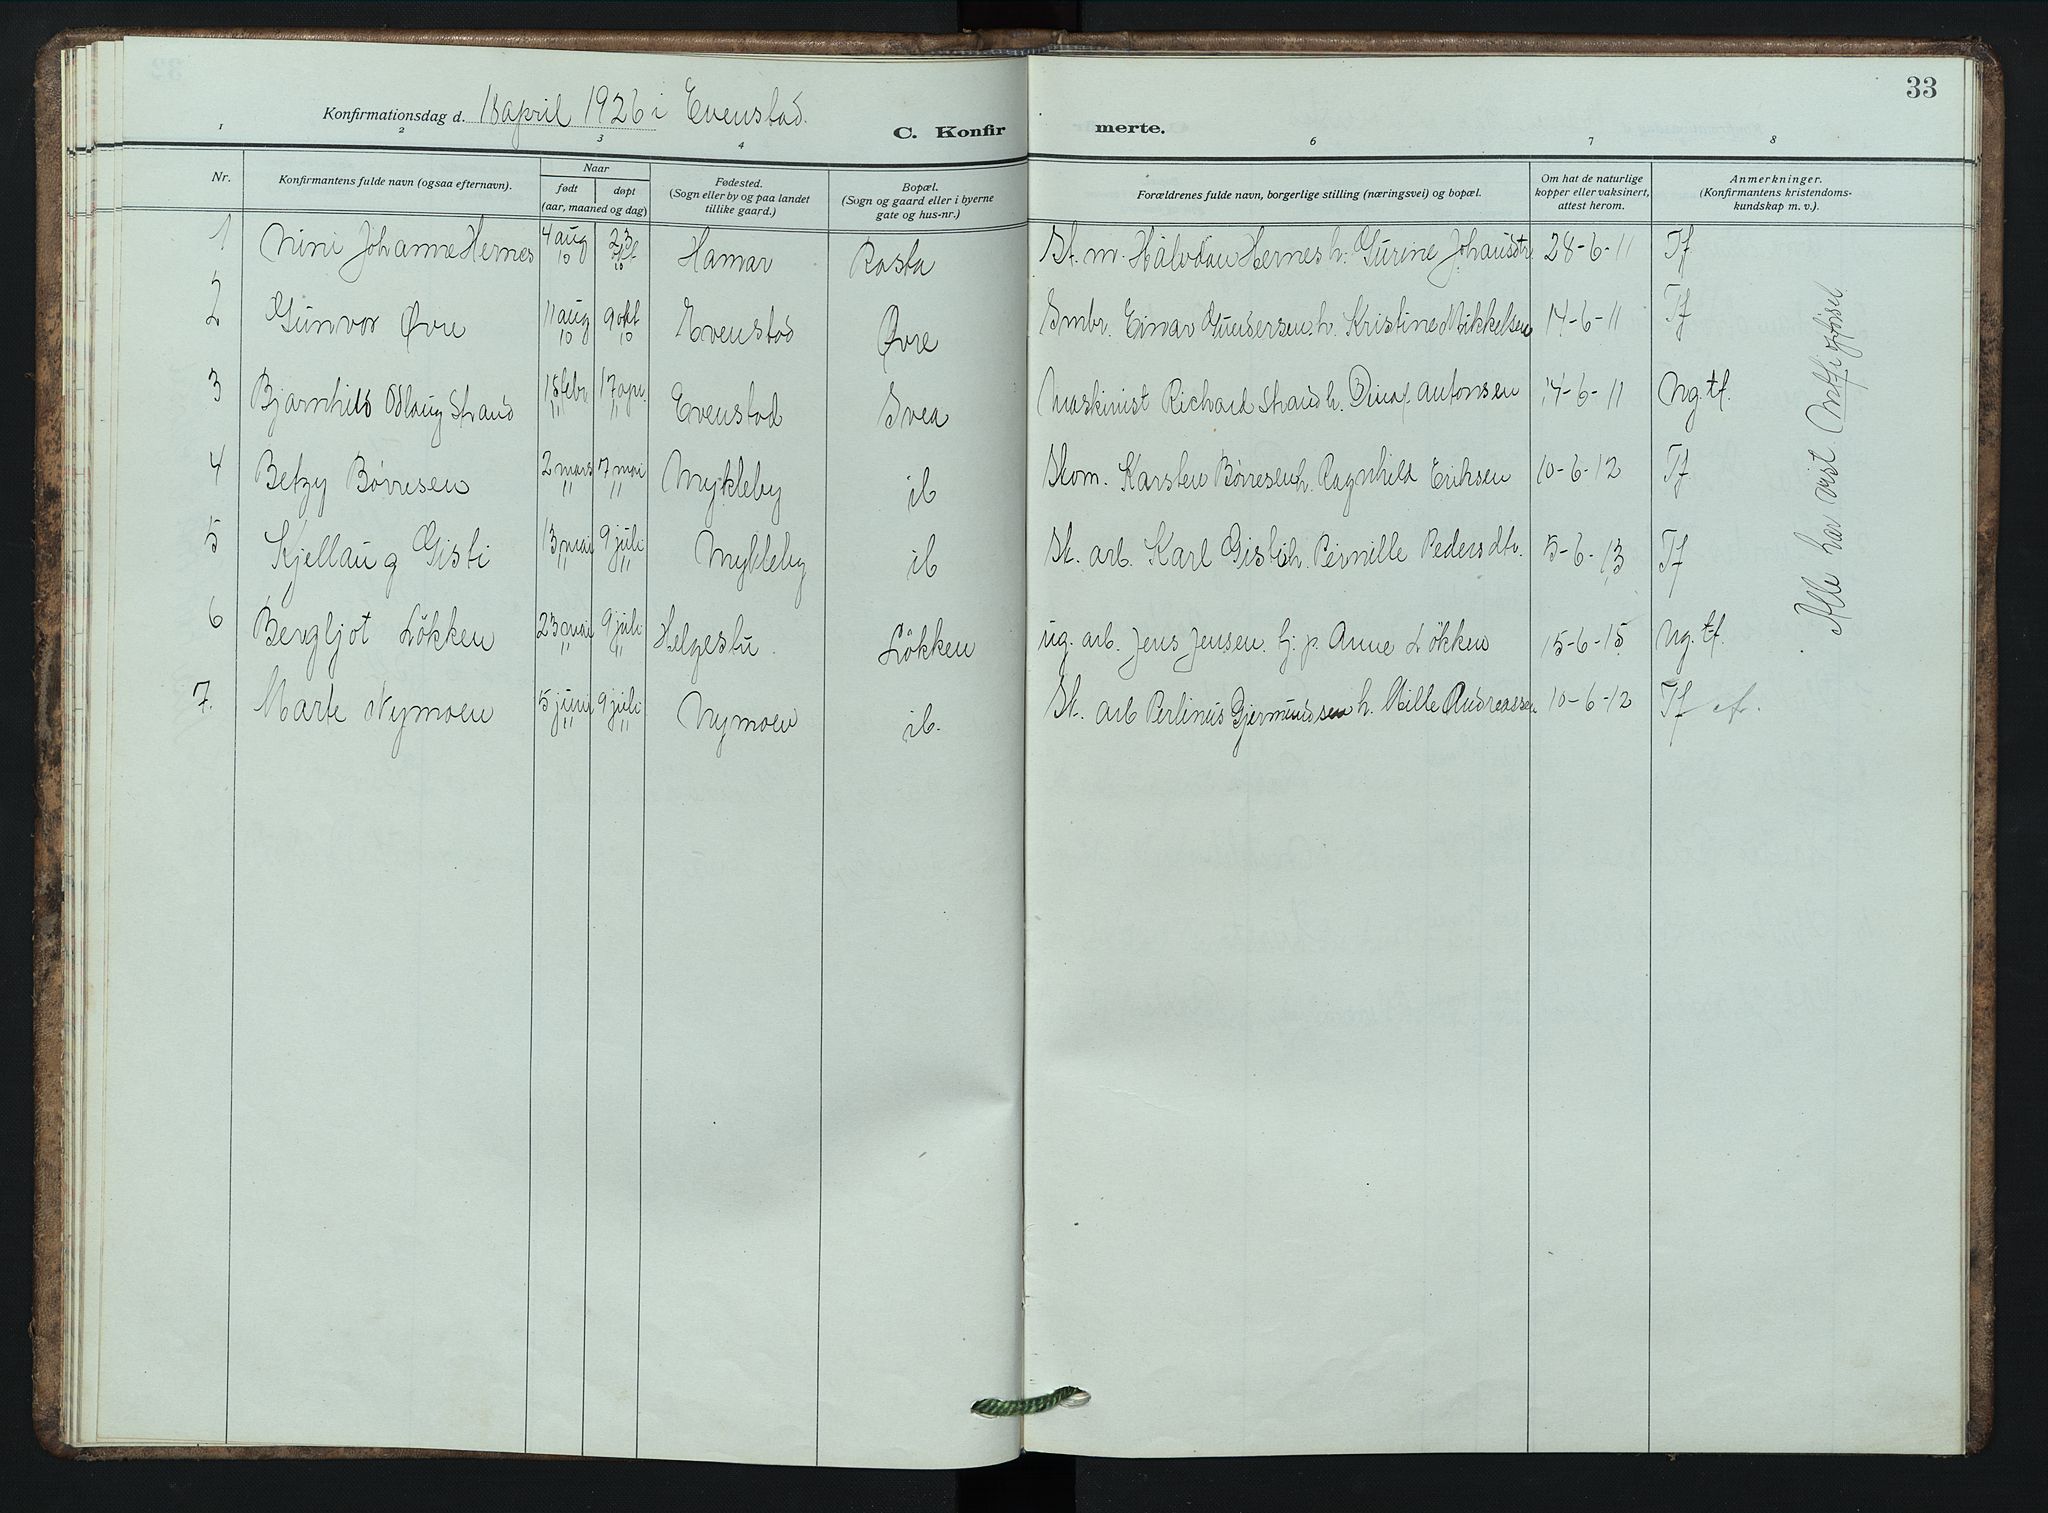 33
Konfirmationsdag d. 18 april 1926 i Evenstad.
C. Konfirmerte.
1 2 3 4 6 7 8
Nr.
Konfirmantens fulde navn (ogsaa efternavn).
Naar
født døpt
(aar, maaned og dag)
Fødested.
(Sogn eller by og paa landet
tillike gaard.)
Bopæl.
(Sogn og gaard eller i byerne
gate og hus-nr.)
Forældrenes fulde navn, borgerlige stilling (næringsvei) og bopæl.
Om hat de naturlige
kopper eller vaksinert,
attest herom.
Anmerkninger.
(Konfirmantens kristendoms-
kundskap m. v.).
1 Nini Johanne Hernes 4 aug 10 23 okt 10 Hamar Rasta St. m. Halvdan Hernes h. Gurine Johansdtr 28-6-11 Tf
2 Gunvor Øvre 11 aug 10 9 okt 10 Evenstad Øvre Smbr. Einar Gundersen h. Kristine Mikkelsen 14-6-11 Tf
3 Bjarnhild Odlaug Strand 15 febr 11 17 apr. 11 Evenstad Svea Maskinist Richard Strand h. Antonsen 14-6-11 Ng. tf.
4 Betzy Børresen 2 mars 11 7 mai 11 Mykleby ib Skom. Karsten Børresen h. Ragnhild Eriksen 10-6-12 Tf
5 Kjellaug Gisti 13 mai 11 9 juli 11 Mykleby ib Sk. arb. Karl Gisti h. Pernille Pedersdtr. 5-6-13 Tf
6 Bergljot Løkken 23 mai 11 9 juli 11 Helgestu Løkken ug. arb. Jens Jensen. hj. p. Anne Løkken 15-6-15 Ng. tf.
7. Marte Nymoen 5 juni 11 9 juli 11 Nymoen ib. Sk. arb Perlinus Gjermundsen h. Mille Andreassen 10-6-12 Tf
Alle har vist